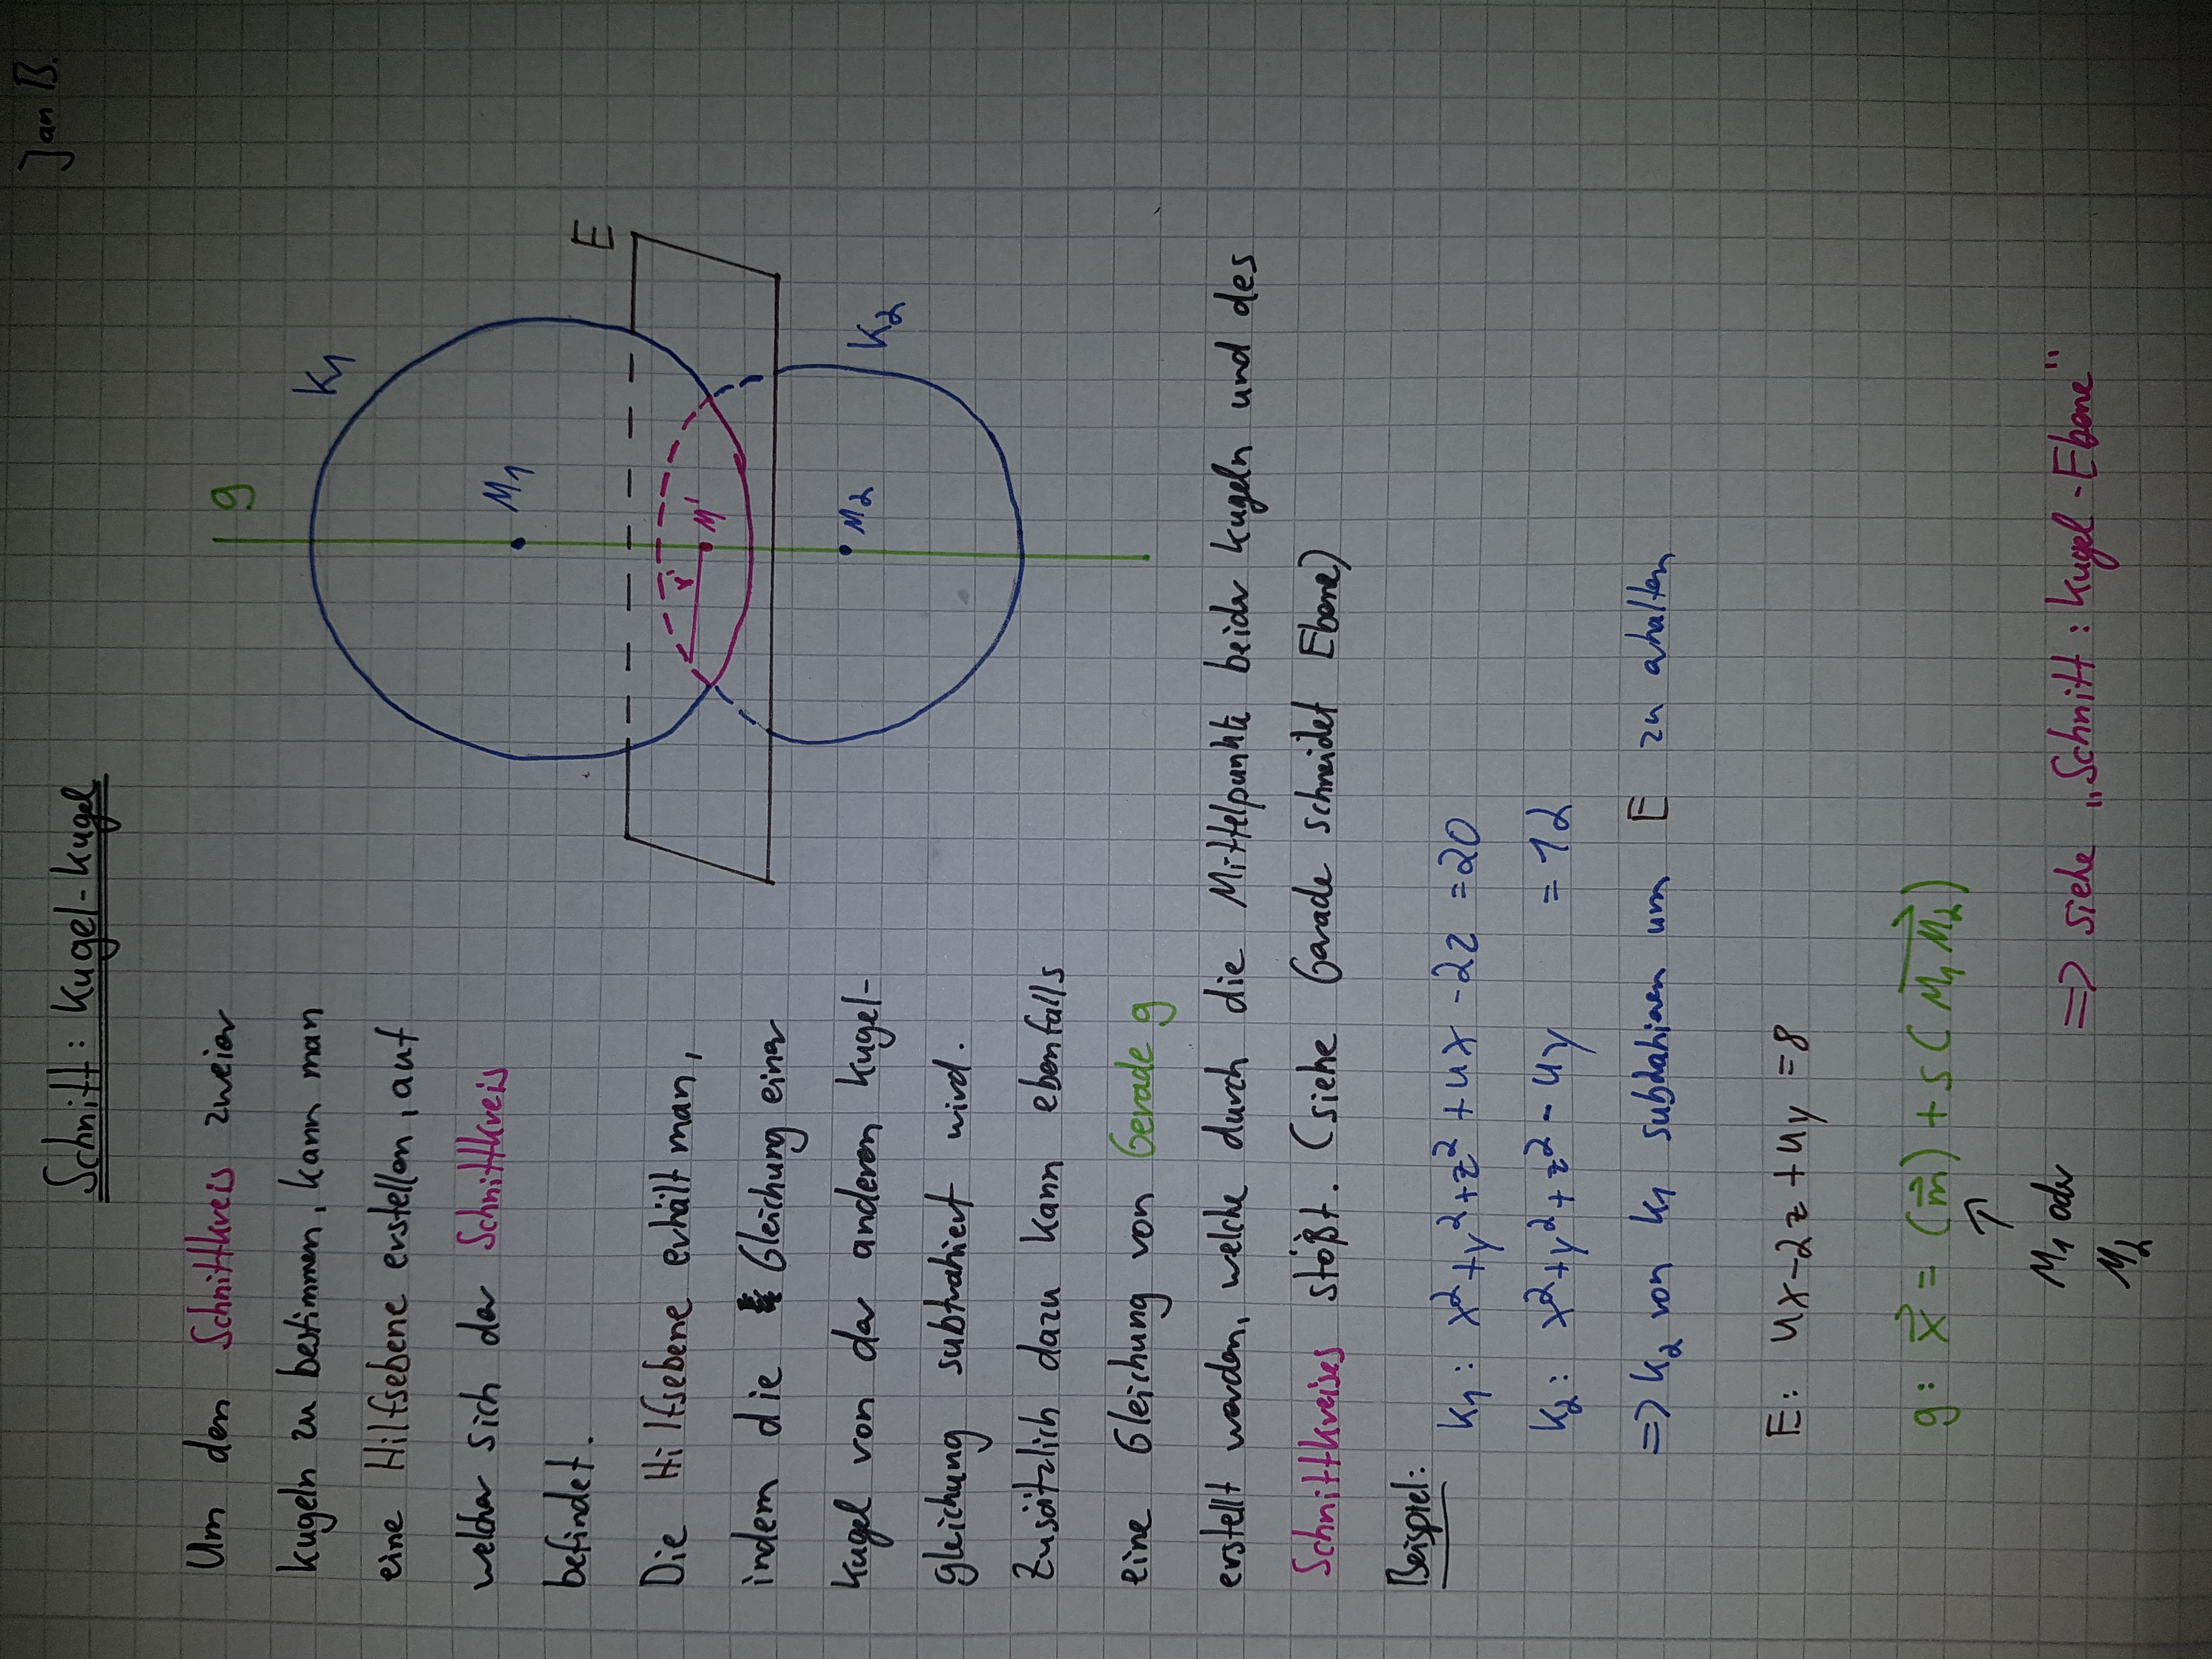 Jan B.
Schnitt: Kugel-Kugel
Um den Schnittkreis zweier
Kugeln zu bestimmen, kann man
eine Hilfsebene erstellen, auf
welcher sich der Schnittkreis
befindet.
Die Hilfsebene erhält man,
indem die Gleichung einer
Kugel von der anderen Kugel-
gleichung subtrahiert wird.
Zusätzlich dazu kann ebenfalls
eine Gleichung von Gerade g
erstellt werden, welche durch die Mittelpunkte beider Kugeln und des
Schnittkreises stößt. (siehe Gerade schneidet Ebene)
g
K1
M1
E
r'
M'
M2
K2
Beispiel:
K1: x²+y²+z²+4x-2z =20
K2: x²+y²+z²-4y =12
=> K2 von K1 subtrahieren um E zu erhalten
E: 4x-2z+4y=8
g: x⃗ = (m⃗)+s(M1M2)
↑
M1 oder
M2
=> siehe „Schnitt: Kugel-Ebene"